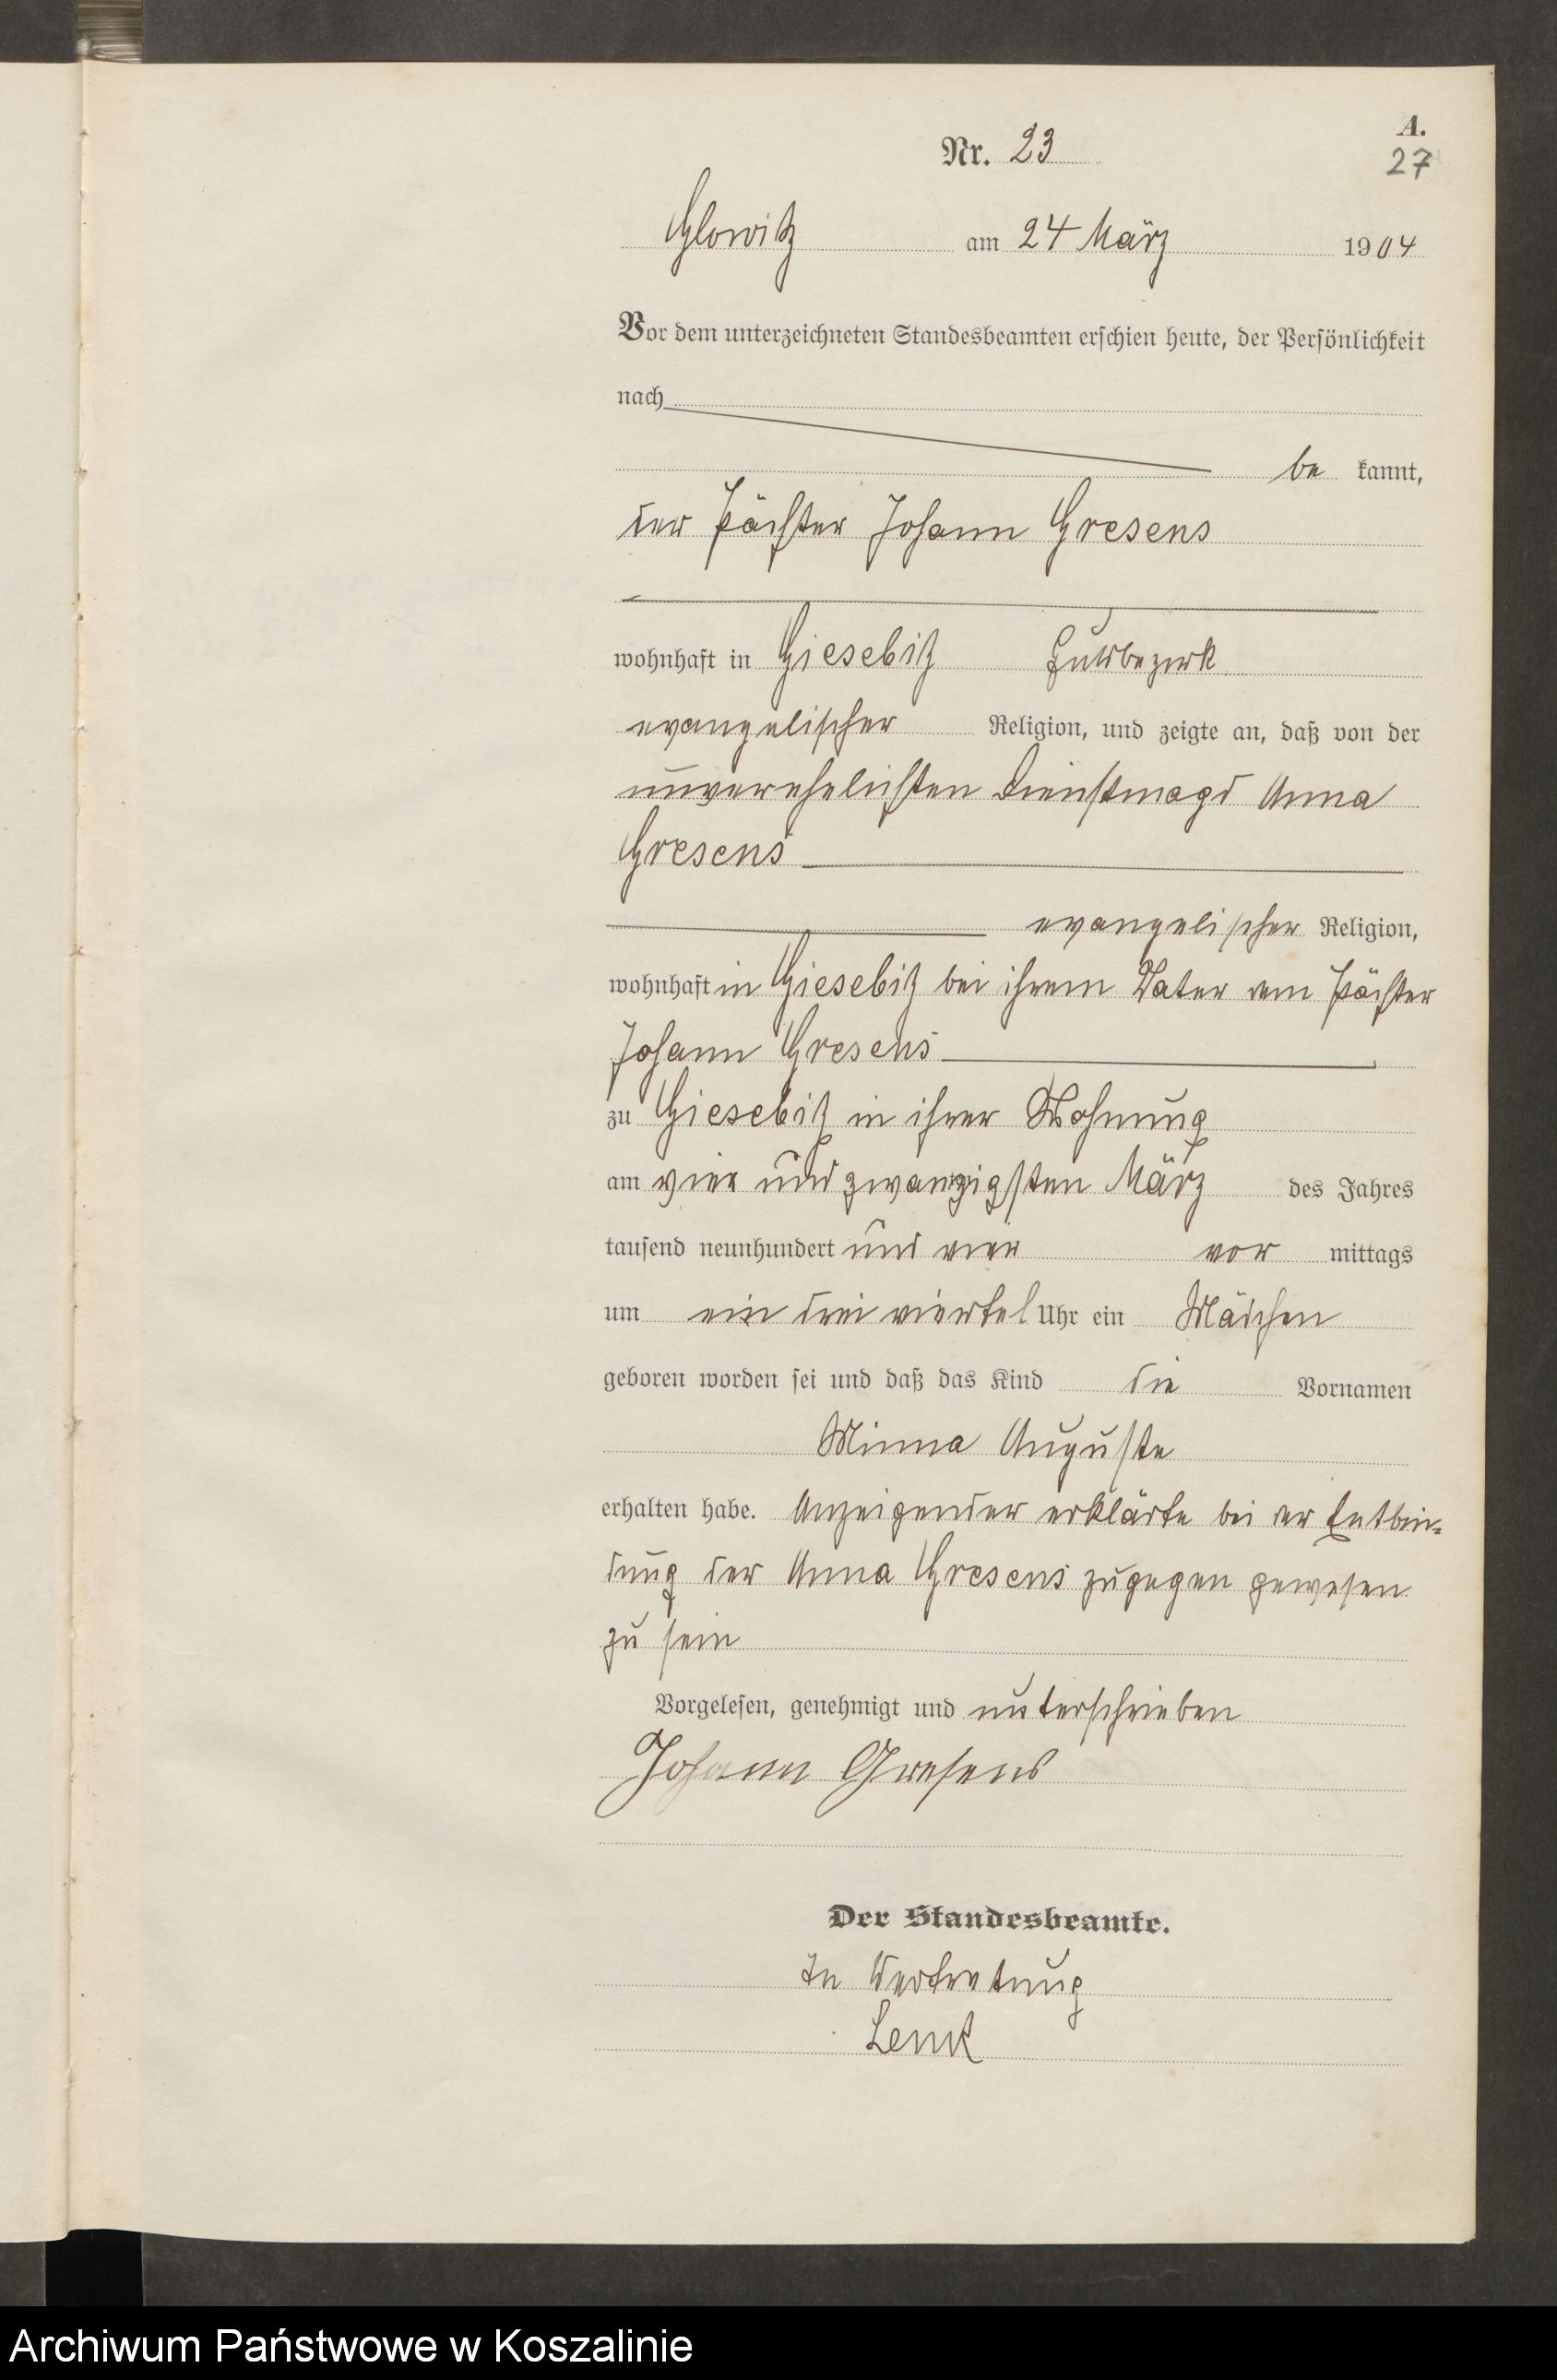 A.
Nr. 23
27
Glowitz am 24 März 1904
Vor dem unterzeichneten Standesbeamten erschien heute, der Persönlichkeit
nach
be kannt,
der Pächter Johann Gresens
wohnhaft in Giesebitz Gutsbezirk
evangelischer Religion, und zeigte an, daß von der
unverehelichten Dienstmagd Anna
Gresens
evangelischer Religion,
wohnhaft in Giesebitz bei ihrem Vater dem Pächter
Johann Gresens
zu Giesebitz in ihrer Wohnung
am vier und zwanzigsten März des Jahres
tausend neunhundert und vier vor mittags
um ein drei viertel Uhr ein Mädchen
geboren worden sei und daß das Kind die Vornamen
Minna Auguste
erhalten habe. Anzeigender erklärte bei der Entbin=
dung der Anna Gresens zugegen gewesen
zu sein
Vorgelesen, genehmigt und unterschrieben
Johann Gresens
Der Standesbeamte.
In Vertretung
Lenk
Archiwum Państwowe w Koszalinie